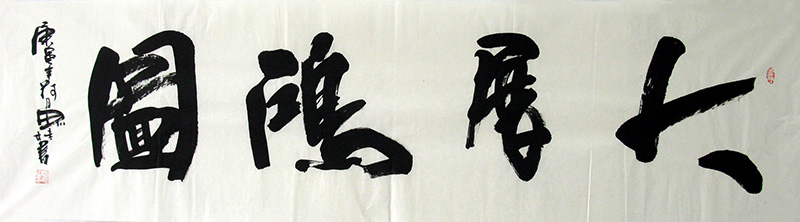 大展鴻圖
庚寅年
書